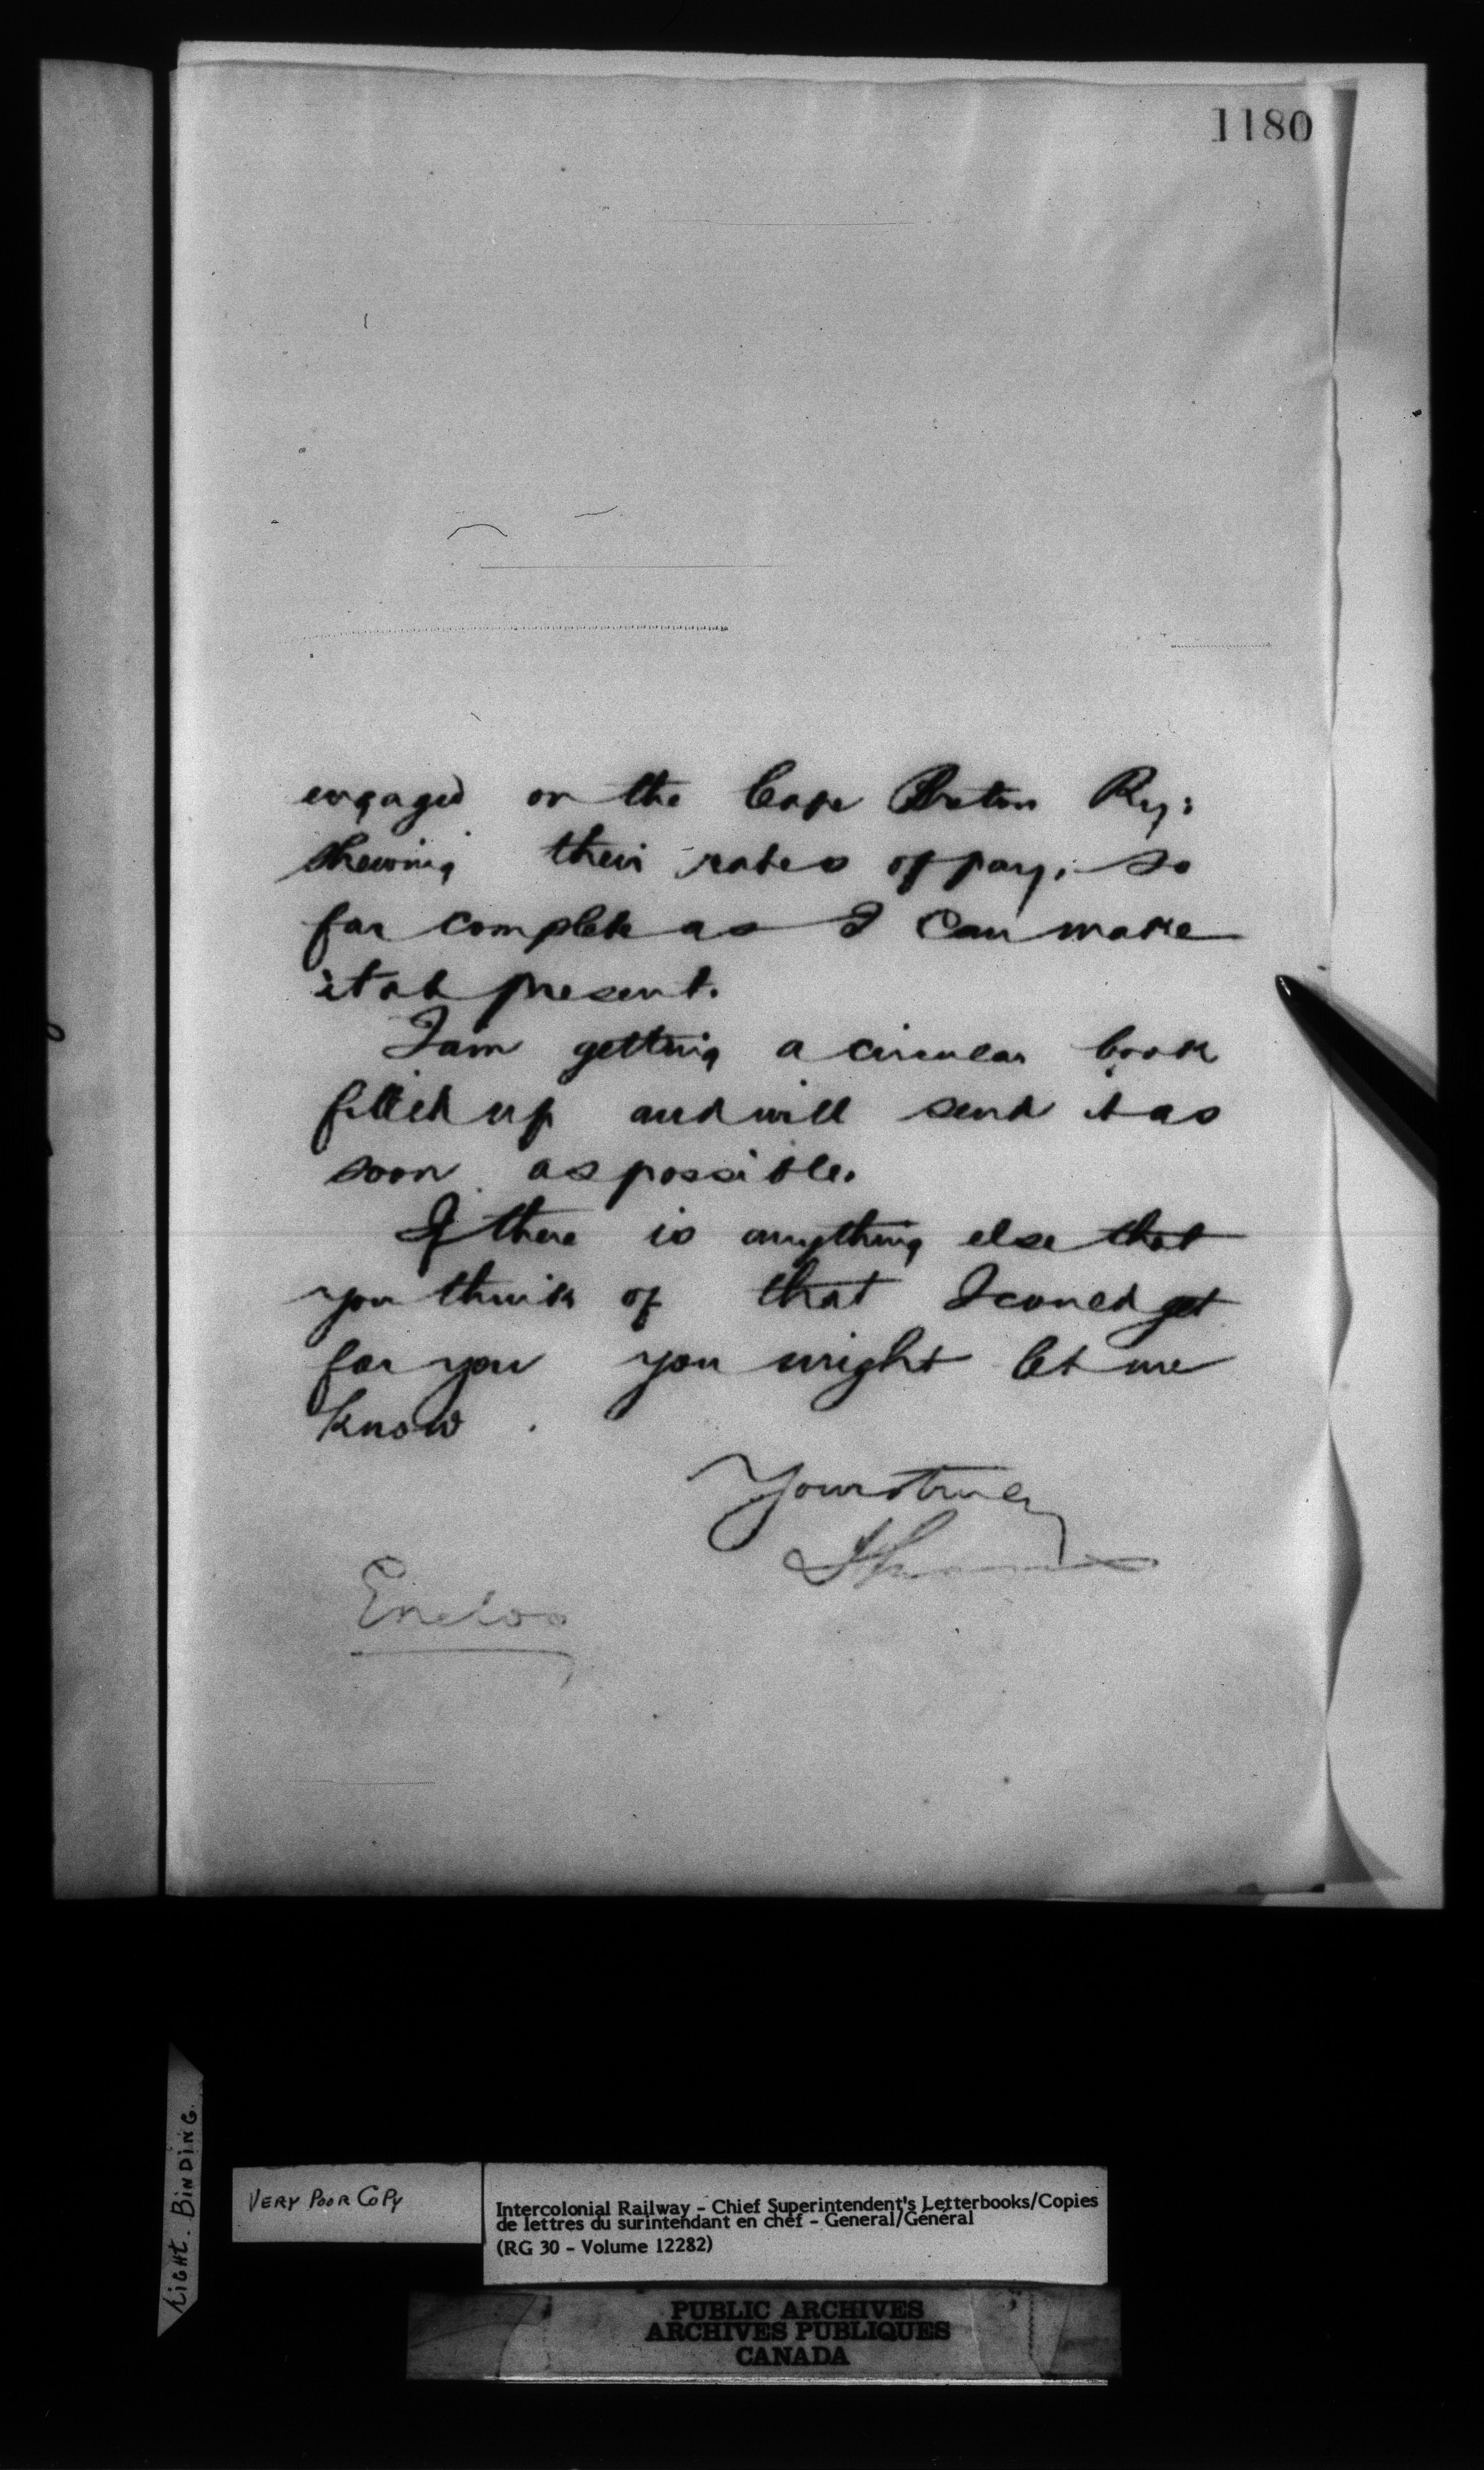 1180
engaged on the Cape Breton Ry:
shewing their rates of pay; so
far complete as I can make
it at present.
I am getting a circular book
filled up and will send it as
soon as possible.
If there is anything else that
you think of that I could get
for you you might let me
know.
Yours truly
Enclos
TIGHT. BINDING.
VERY POOR COPY
Intercolonial Railway - Chief Superintendent's Letterbooks/Copies
de lettres du surintendant en chef - General/Général
(RG 30 - Volume 12282)
PUBLIC ARCHIVES
ARCHIVES PUBLIQUES
CANADA